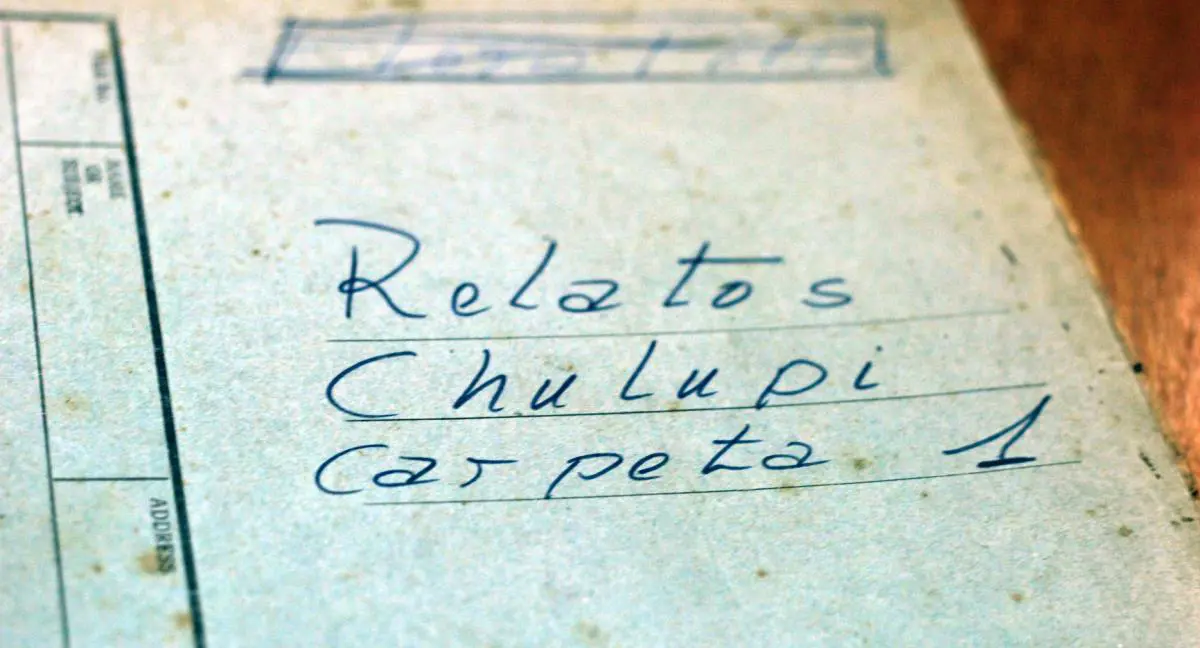 Relatos
Chulupi
Carpeta 1
NAME
OR
SUBJECT
ADDRESS